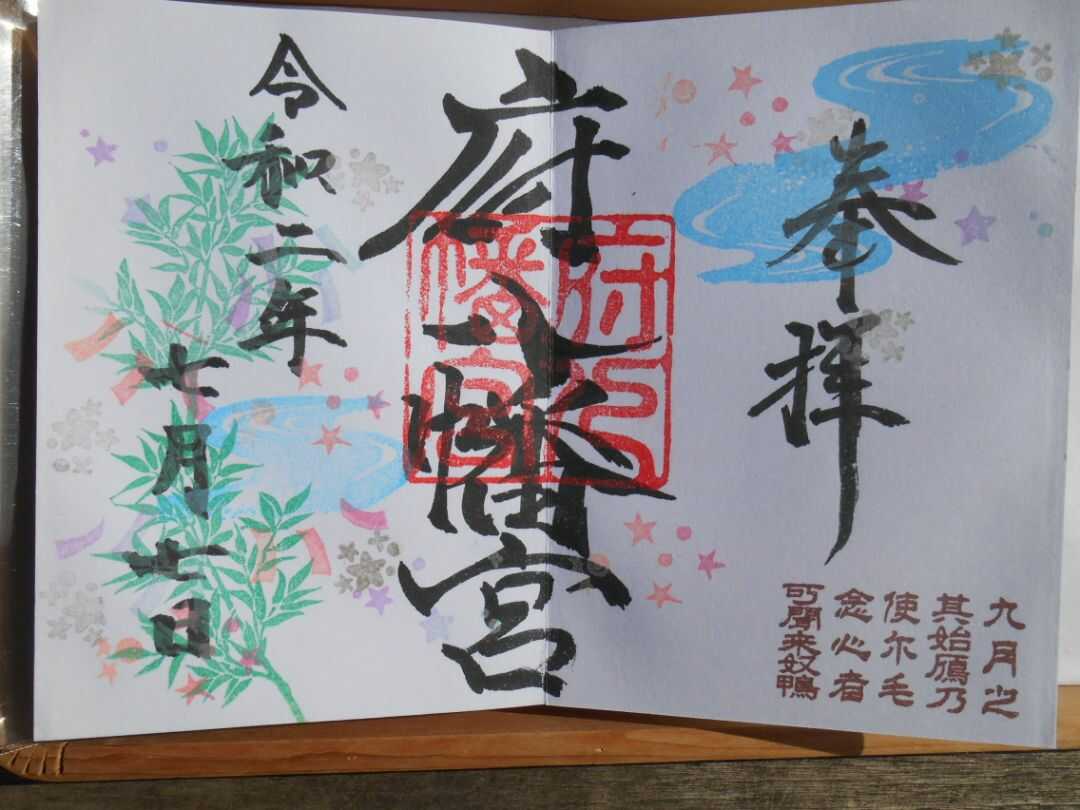 奉拝
府八幡宮
府八
幡宮
令和二年
七月七日
九月之
其始鴈乃
使尓毛
念心者
可聞来奴鴨